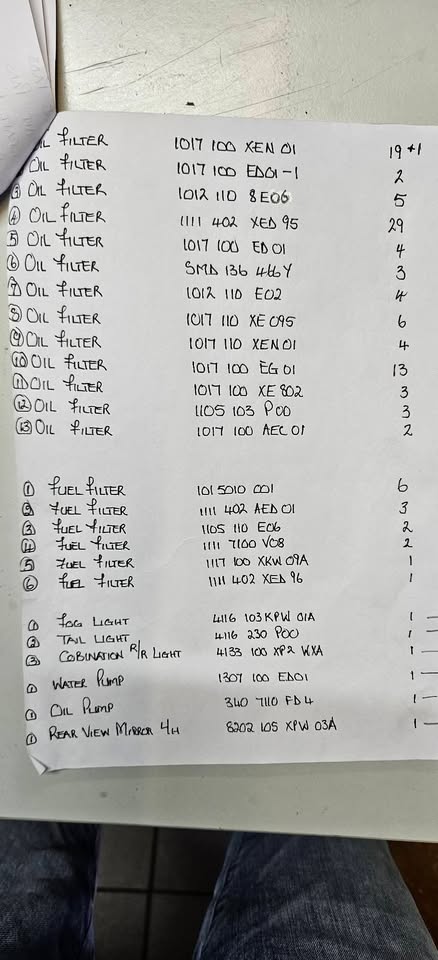 IL FILTER 1017 100 XEN 01 19 +1
OIL FILTER 1017 100 ED01-1 2
③ OIL FILTER 1012 110 8E06 5
④ OIL FILTER 1111 402 XED 95 29
⑤ OIL FILTER 1017 100 ED 01 4
⑥ OIL FILTER SMD 136 466Y 3
⑦ OIL FILTER 1012 110 E02 4
⑧ OIL FILTER 1017 110 XE 095 6
⑨ OIL FILTER 1017 110 XEN 01 4
⑩ OIL FILTER 1017 100 EG 01 13
⑪ OIL FILTER 1017 100 XE 802 3
⑫ OIL FILTER 1105 103 P00 3
⑬ OIL FILTER 1017 100 AEC 01 2
① FUEL FILTER 101 5010 C01 6
② FUEL FILTER 1111 402 AED 01 3
③ FUEL FILTER 1105 110 E06 2
④ FUEL FILTER 1111 7100 V08 2
⑤ FUEL FILTER 1117 100 XKW 09A 1
⑥ FUEL FILTER 1111 402 XED 96 1
① FOG LIGHT 4116 103 KPW 01A 1 —
② TAIL LIGHT 4116 230 P00 1 —
③ COBINATION R/R LIGHT 4133 100 XP2 WXA 1 —
① WATER PUMP 1307 100 ED01 1 —
① OIL PUMP 340 7110 FD4 1 —
① REAR VIEW MIRROR 4H 8202 105 XPW 03A 1 —